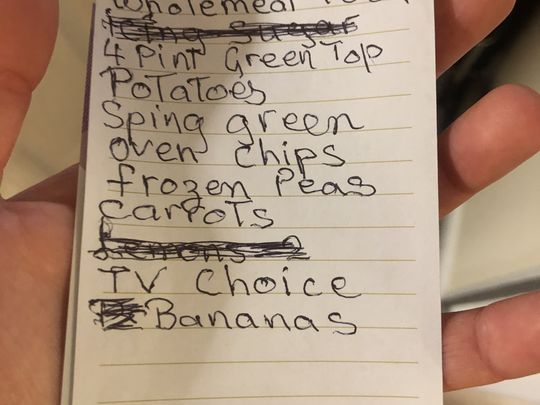 Wholemeal
Icing Sugar
4 Pint Green Top
Potatoes
Sping green
oven chips
frozen Peas
Carrots
Lemons 2
TV Choice
Bananas